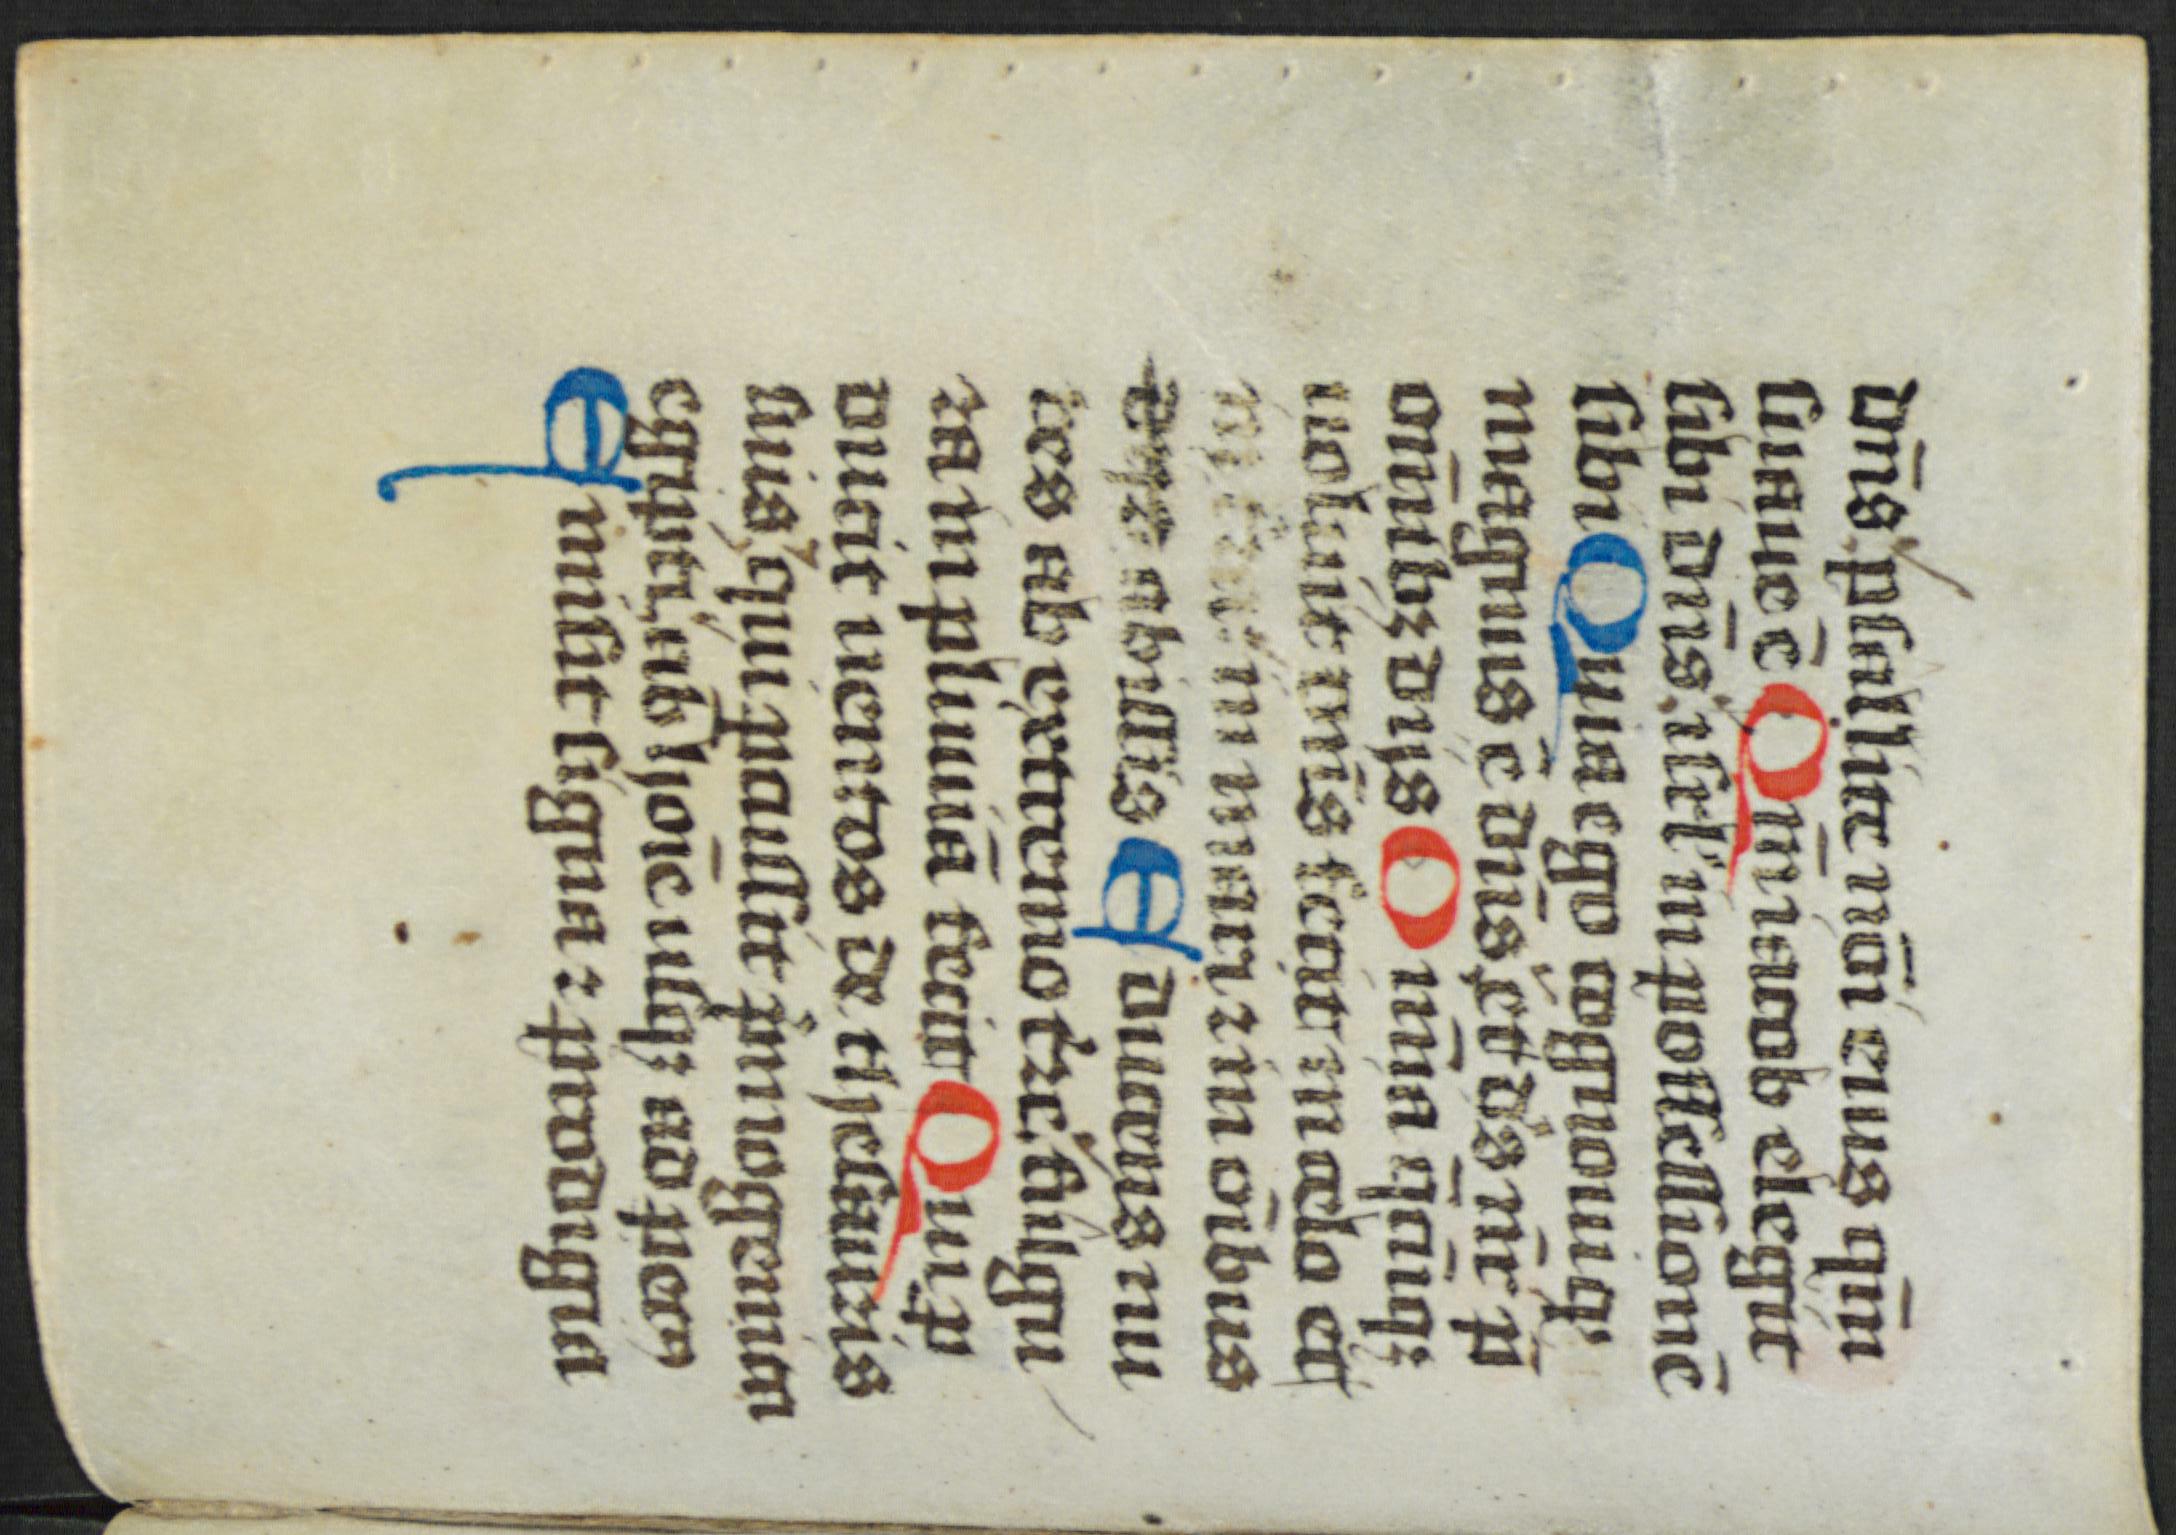 dñs psallite nōi eius qm̄
suaue ē Qm̄ iacob elegit
sibi dn̄s isrl' in possessionē
sibi Quia ego cognouiq'
magnus ē dn̄s ett ds nr̄ p̄
om̄ibꝫ dijs Om̄ia q̄cūqꝫ
uoluit dn̄s fecitt in celo ett
in mari ꝫ in oībus
abissis Educens nu
bes ab extremo tr̄e fulgu
ra in pluuiā fecit Qui p
ducit uentos de thesauris
suis qui pcussit pmogenita
egipti ab hoīe usqꝫ ad pecꝰ
Emisit signa ꝫ prodigia